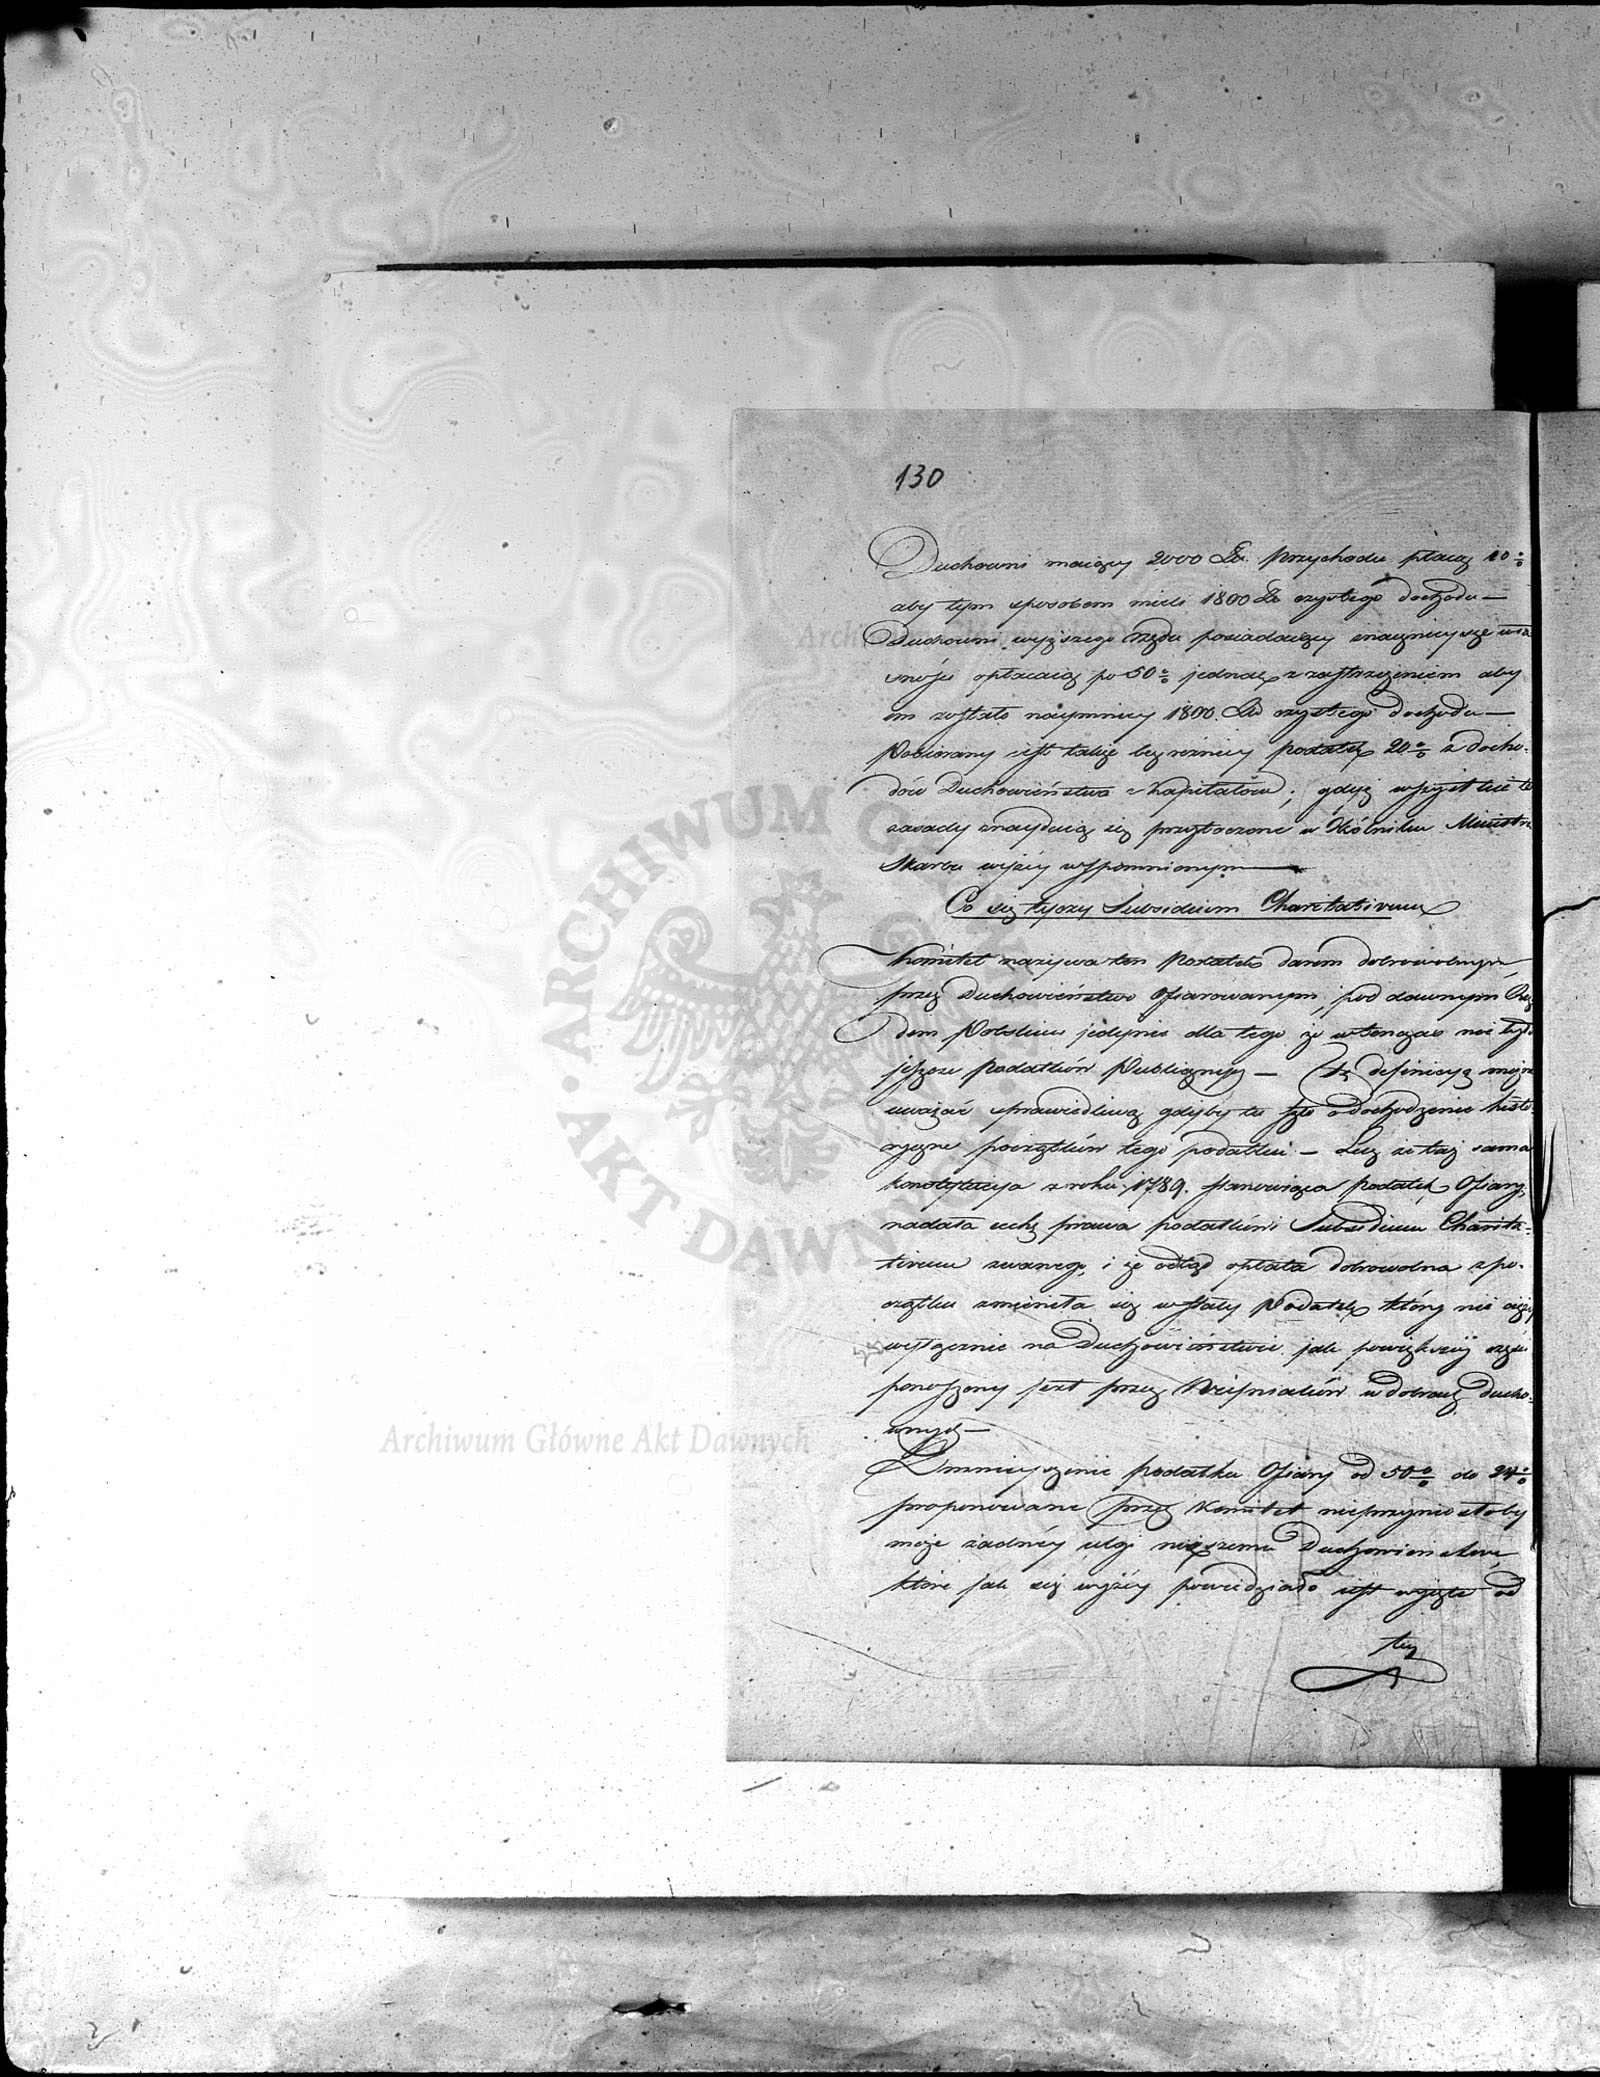 130
Duchowni maiący 2000 Zł. przychodu płacą 10 %
aby tym sposobem mieli 1800 Zł czystego dochodu —
Duchowni wyższego rzędu posiadaiący znacznieysze wła
sności opłacaią po 50 % jednak z zastrzeżeniem aby
im zostało naymniey 1800. Zł czystego dochodu —
Pobierany iest także bez różnicy podatek 20 % z docho-
dów Duchowieństwa z Kapitałów; gdyż wszystkie te
zasady znayduią się przytoczone w Okólniku Ministra
Skarbu wyżey wspomnionym —
Co się tyczy Subsidium Charitativum
Komitet nazywa ten Podatek darem dobrowolnym
przez Duchowieństwo Ofiarowanym, pod dawnym Rzą
dem Polskim jedynie dla tego że wtenczas nie było
jeszcze Podatków Publicznych — Tę definicyą można
uważać sprawiedliwą gdyby tu szło o dochodzenie histo-
ryczne początków tego podatku — Lecz że taż sama
konstytucyja z roku 1789. stanowiąca podatek Ofiary,
nadała cechę prawa podatkowi Subsidium Charita-
tivum zwanego, i że odtąd opłata dobrowolna z po-
czątku zmieniła się w stały Podatek który nie ciąży
wyłącznie na Duchowieństwie jak powiększéy części
ponoszony jest przez Wieśniaków w dobrach Ducho-
wnych —
Zmnieyszenie podatku Ofiary od 50 % do 24 %
proponowane przez Komitet nieprzyniosłoby
może żadnéy ulgi niższemu Duchowieństwu
które jak się wyżéy powiedziało iest wyięte od
tey
Archiwum Główne Akt Dawnych
ARCHIWUM GŁÓWNE AKT DAWNYCH